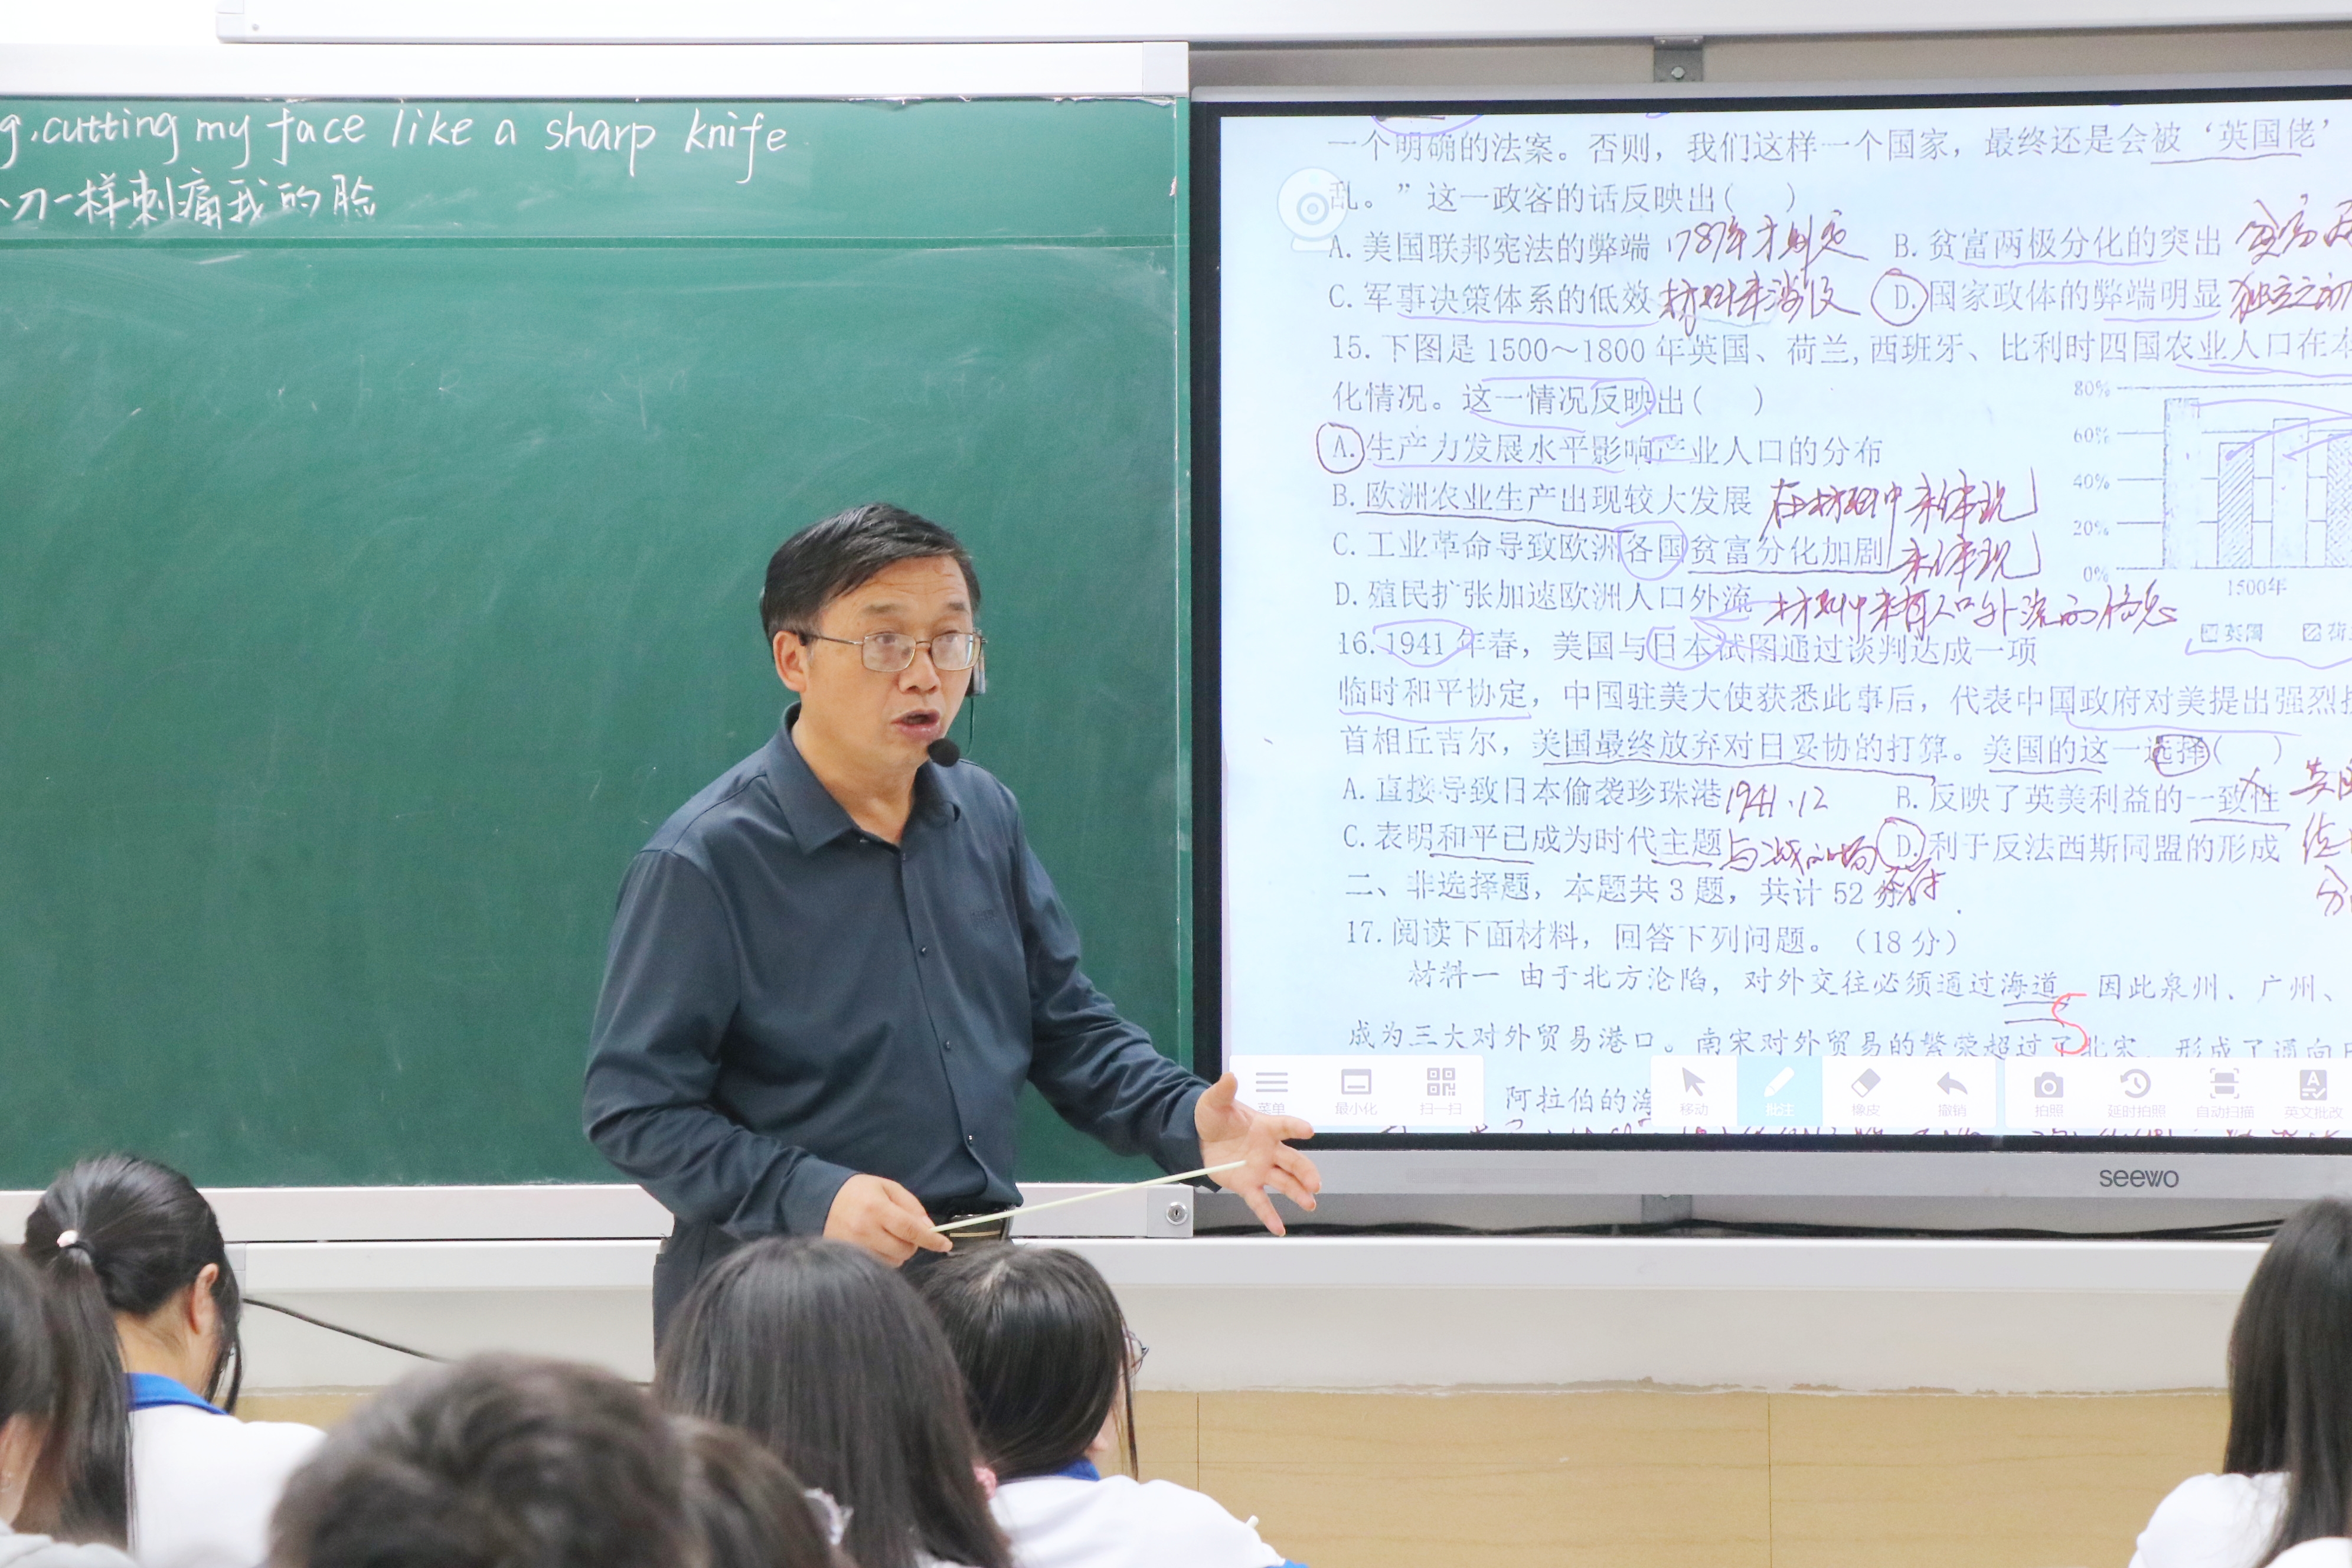 g, cutting my face like a sharp knife
刀一样刺痛我的脸
一个明确的法案。否则，我们这样一个国家，最终还是会被‘英国佬’
乱。”这一政客的话反映出（ ）
A. 美国联邦宪法的弊端 1787年才制定 B. 贫富两极分化的突出
C. 军事决策体系的低效 材料未涉及 D. 国家政体的弊端明显 独立之初
15. 下图是 1500～1800 年英国、荷兰,西班牙、比利时四国农业人口在本
化情况。这一情况反映出（ ）
80%
A. 生产力发展水平影响产业人口的分布
60%
B. 欧洲农业生产出现较大发展 在材料中未体现
40%
C. 工业革命导致欧洲各国贫富分化加剧 未体现
20%
0%
D. 殖民扩张加速欧洲人口外流 材料中未有人口外流的信息
1500年
英国 荷
16. 1941 年春，美国与日本试图通过谈判达成一项
临时和平协定，中国驻美大使获悉此事后，代表中国政府对美提出强烈
首相丘吉尔，美国最终放弃对日妥协的打算。美国的这一选择（ ）
A. 直接导致日本偷袭珍珠港 1941.12 B. 反映了英美利益的一致性
C. 表明和平已成为时代主题 D. 利于反法西斯同盟的形成
二、非选择题，本题共 3 题，共计 52
17. 阅读下面材料，回答下列问题。（18 分）
材料一 由于北方沦陷，对外交往必须通过海道 因此泉州、广州、
5
成为三大对外贸易港口。南宋对外贸易的繁荣超过了北宋，形成了通向
阿拉伯的海
菜单 最小化 扫一扫 移动 批注 橡皮 撤销 拍照 延时拍照 自动扫描 英文批改
seewo